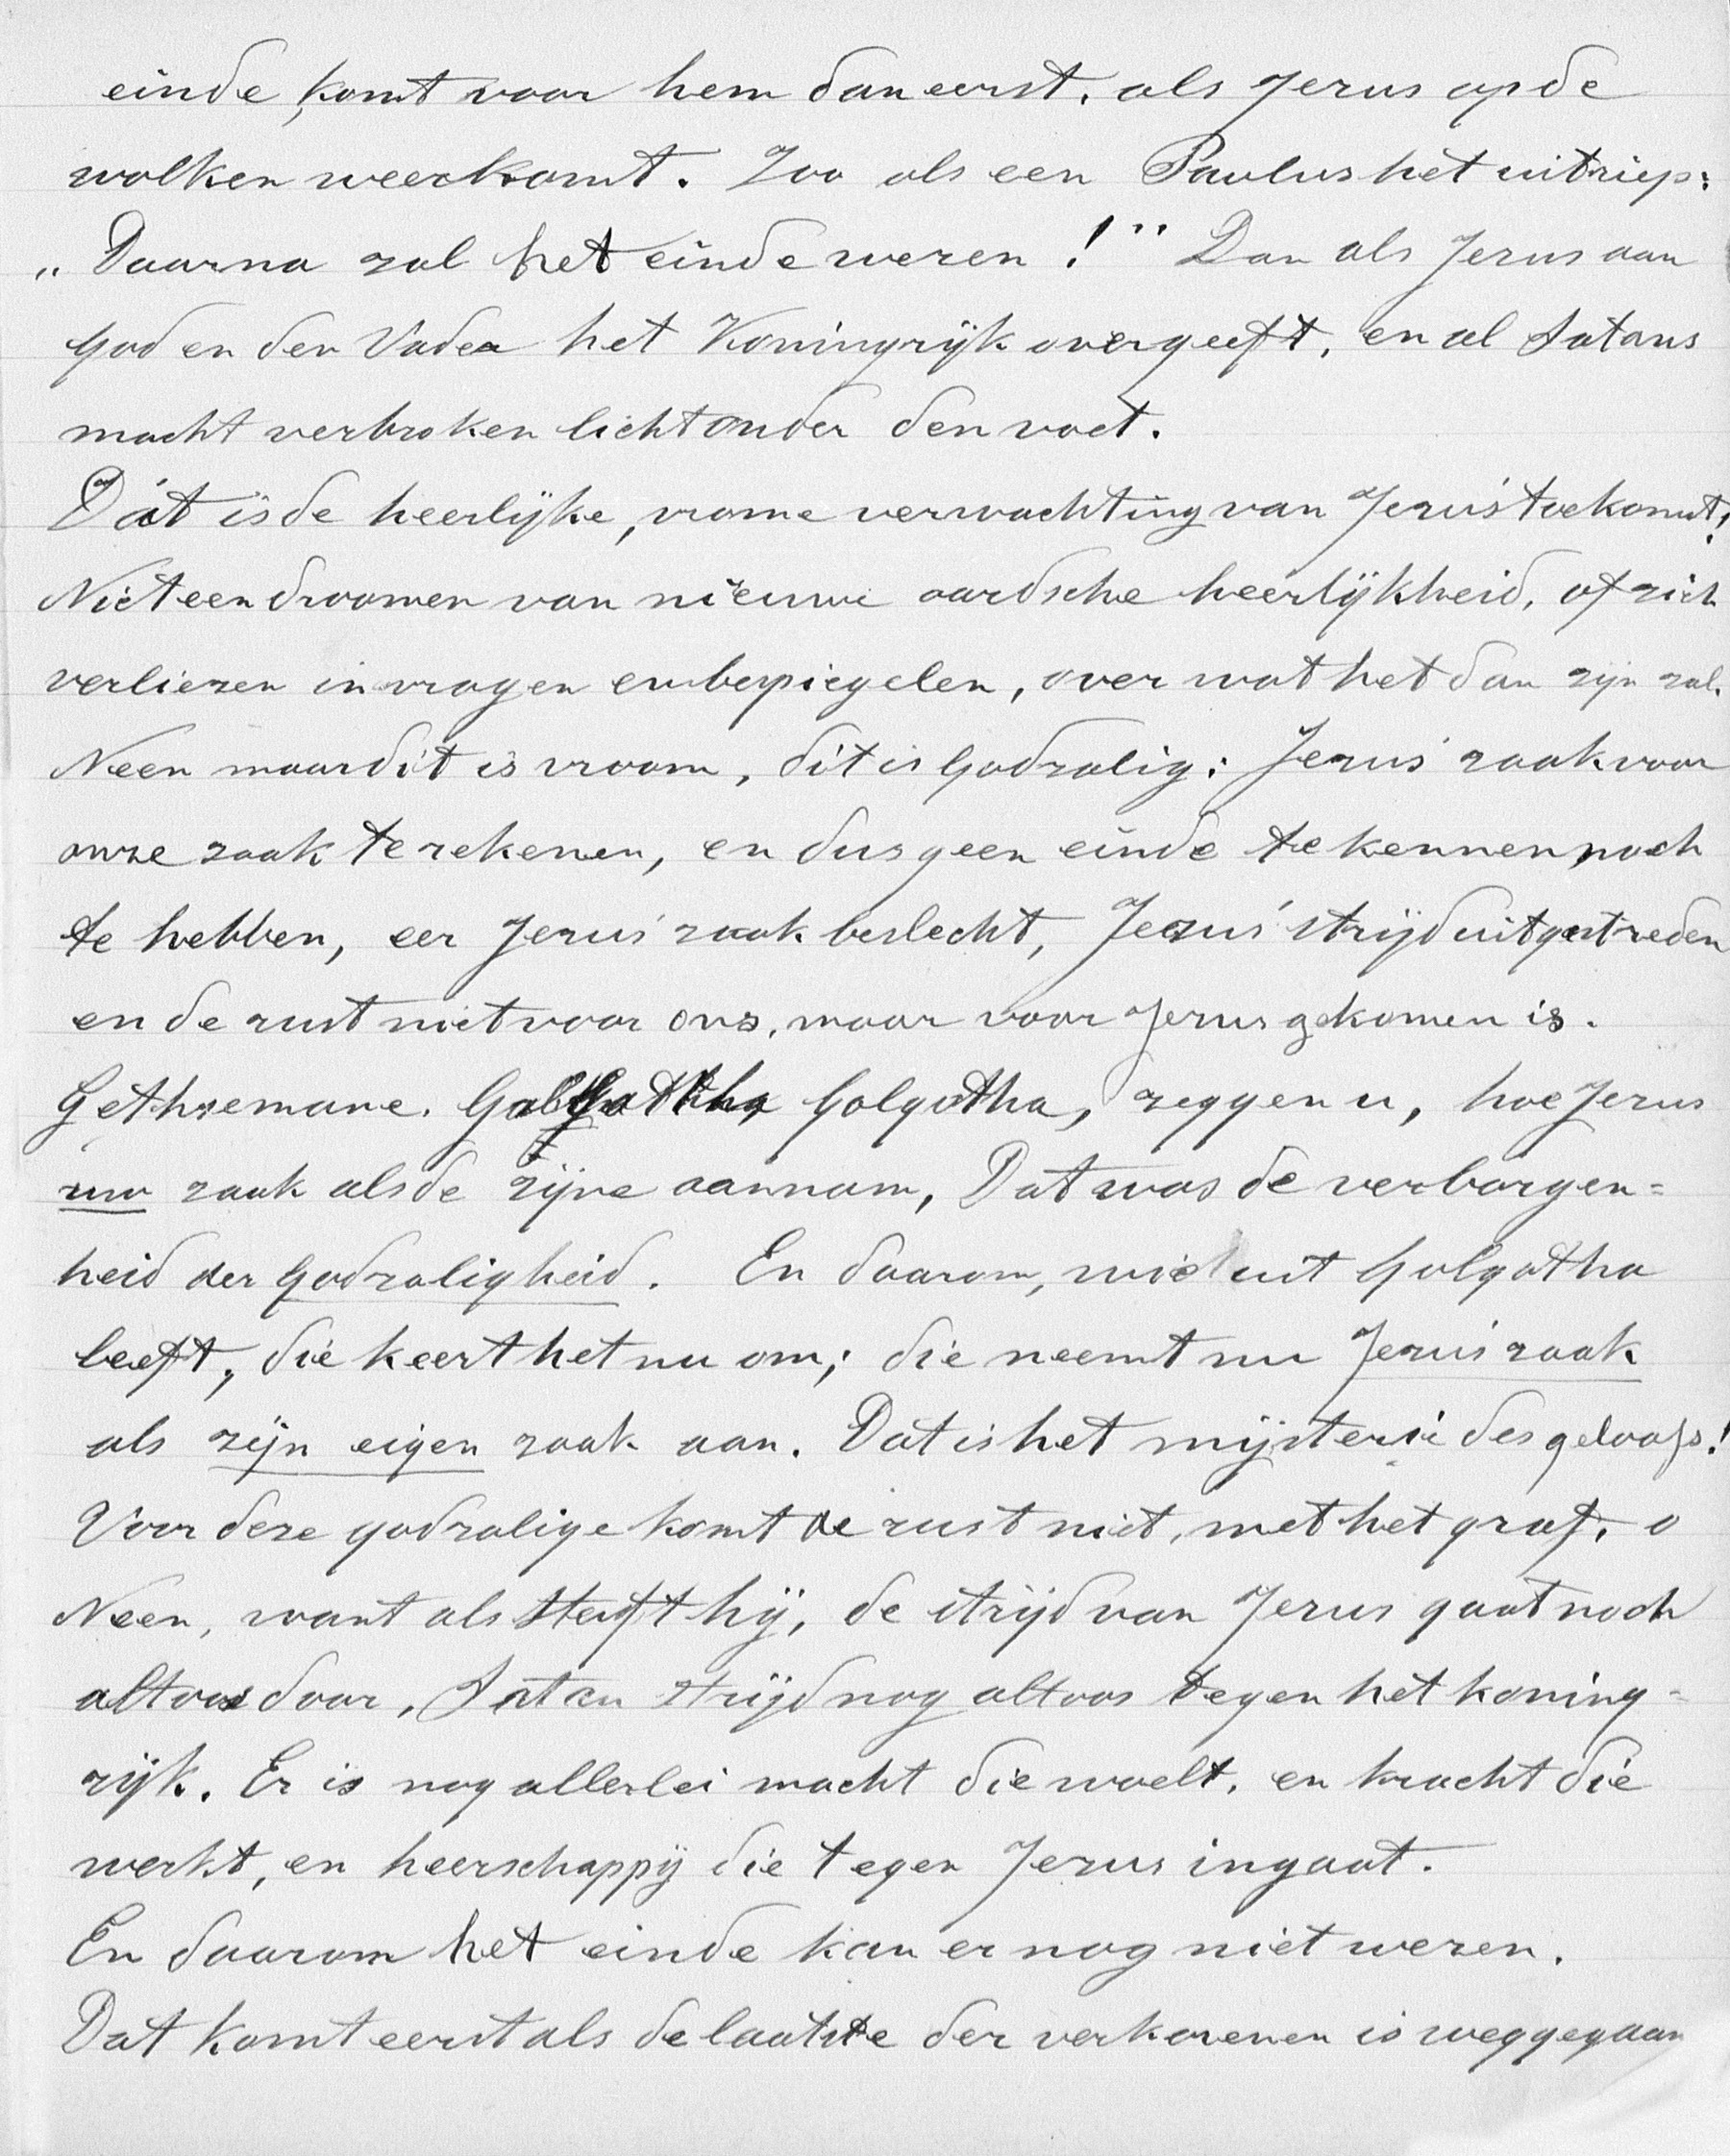 einde, komt voor hem dan eerst, als Jezus op de
wolken weerkomt. Zoo als een Paulus het uitriep:
„Daarna zal het einde wezen!” Dan als Jezus aan
God en den Vader het Koningrijk overgeeft, en al Satans
macht verbroken licht onder den voet.
Dát is de heerlijke, vrome verwachting van Jezus' toekomst!
Niet een droomen van nieuwe aardsche heerlijkheid, of zich
verliezen in vragen en bespiegelen, over wat het dan zijn zal.
Neen maar dit is vroom, dit is Godzalig: Jezus' zaak voor
onze zaak te rekenen, en dus geen einde te kennen, noch
te hebben, eer Jezus' zaak beslecht, Jezus' strijd uitgestreden
en de rust niet voor ons, maar voor Jezus gekomen is.
Gethsemane. Golgotha, zeggen u, hoe Jezus
uw zaak als de zijne aannam, Dat was de verborgen=
heid der Godzaligheid. En daarom, wie uit Golgotha
leeft, die keert het nu om; die neemt nu Jezus' zaak
als zijn eigen zaak aan. Dat is het mijsterie des geloofs!
Voor deze godzalige komt de rust niet, met het graf. o
Neen, want als sterft hij, de strijd van Jezus gaat noch
altoos door, Satan strijd nog altoos tegen het koning=
rijk. Er is nog allerlei macht die woelt, en kracht die
werkt, en heerschappij die tegen Jezus ingaat.
En daarom het einde kan er nog niet wezen.
Dat komt eerst als de laatste der verkorenen is weggegaan